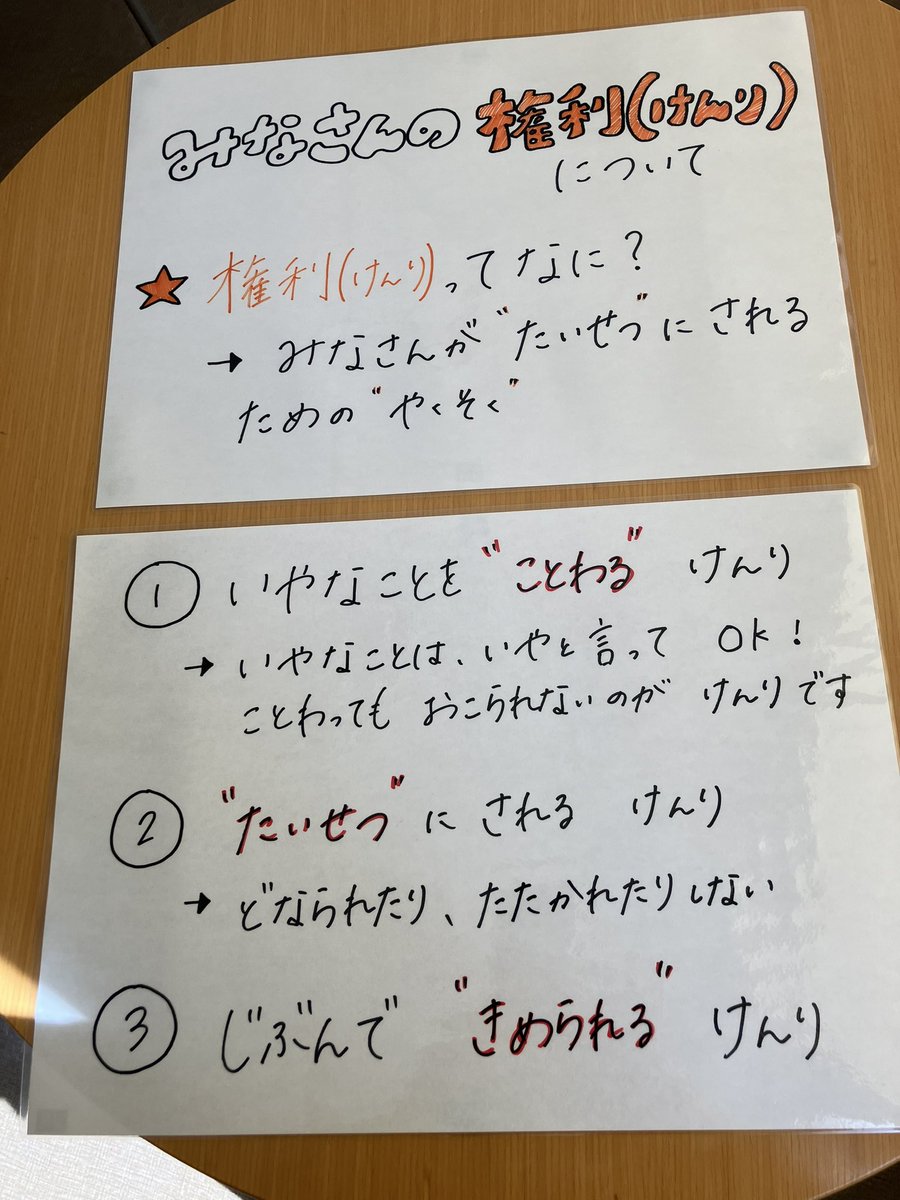 みなさんの 権利(けんり)
について
★ 権利(けんり)ってなに？
→ みなさんが"たいせつ"にされる
ための"やくそく"
① いやなことを"ことわる" けんり
→ いやなことは、いやと言って OK！
ことわっても おこられないのが けんりです
② "たいせつ"に される けんり
→ どなられたり、たたかれたりしない
③ じぶんで "きめられる" けんり